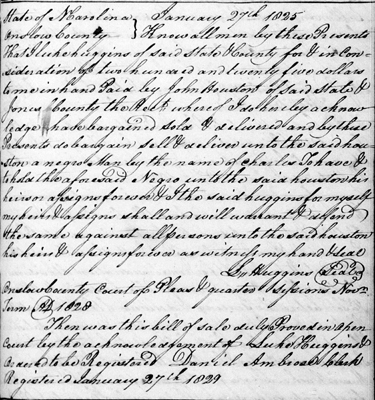 State of N Carolina } January 27th 1825
Onslow County } Know all men by these Presents
That I Luke huggins of said State & County for & in Con=
sideration of two hundred and twenty five dollars
to me in hand Paid by John houston of said State &
Jones County the Rect whereof I do hereby acknow
ledge have bargained sold & delivered and by these
Presents do bargain sell & deliver unto the said hou=
ston a negro Man by the name of Charles To have &
to hold the aforesaid Negro unto the said houston his
heirs or assigns forever & I the said huggins for myself
my heirs & assigns shall and will warrant & defend
the same against all persons unto the said houston
his heirs & assigns forever as witness my hand & Seal
Lu Huggins Seal
Onslow County Court of Pleas & quarter Sessions Novr
Term 1828
Then was this bill of sale duly Proved in open
Court by the acknowledgement of Luke Huggins &
Ordered to be Registered Daniel Ambrose Clerk
Registered January 27th 1829